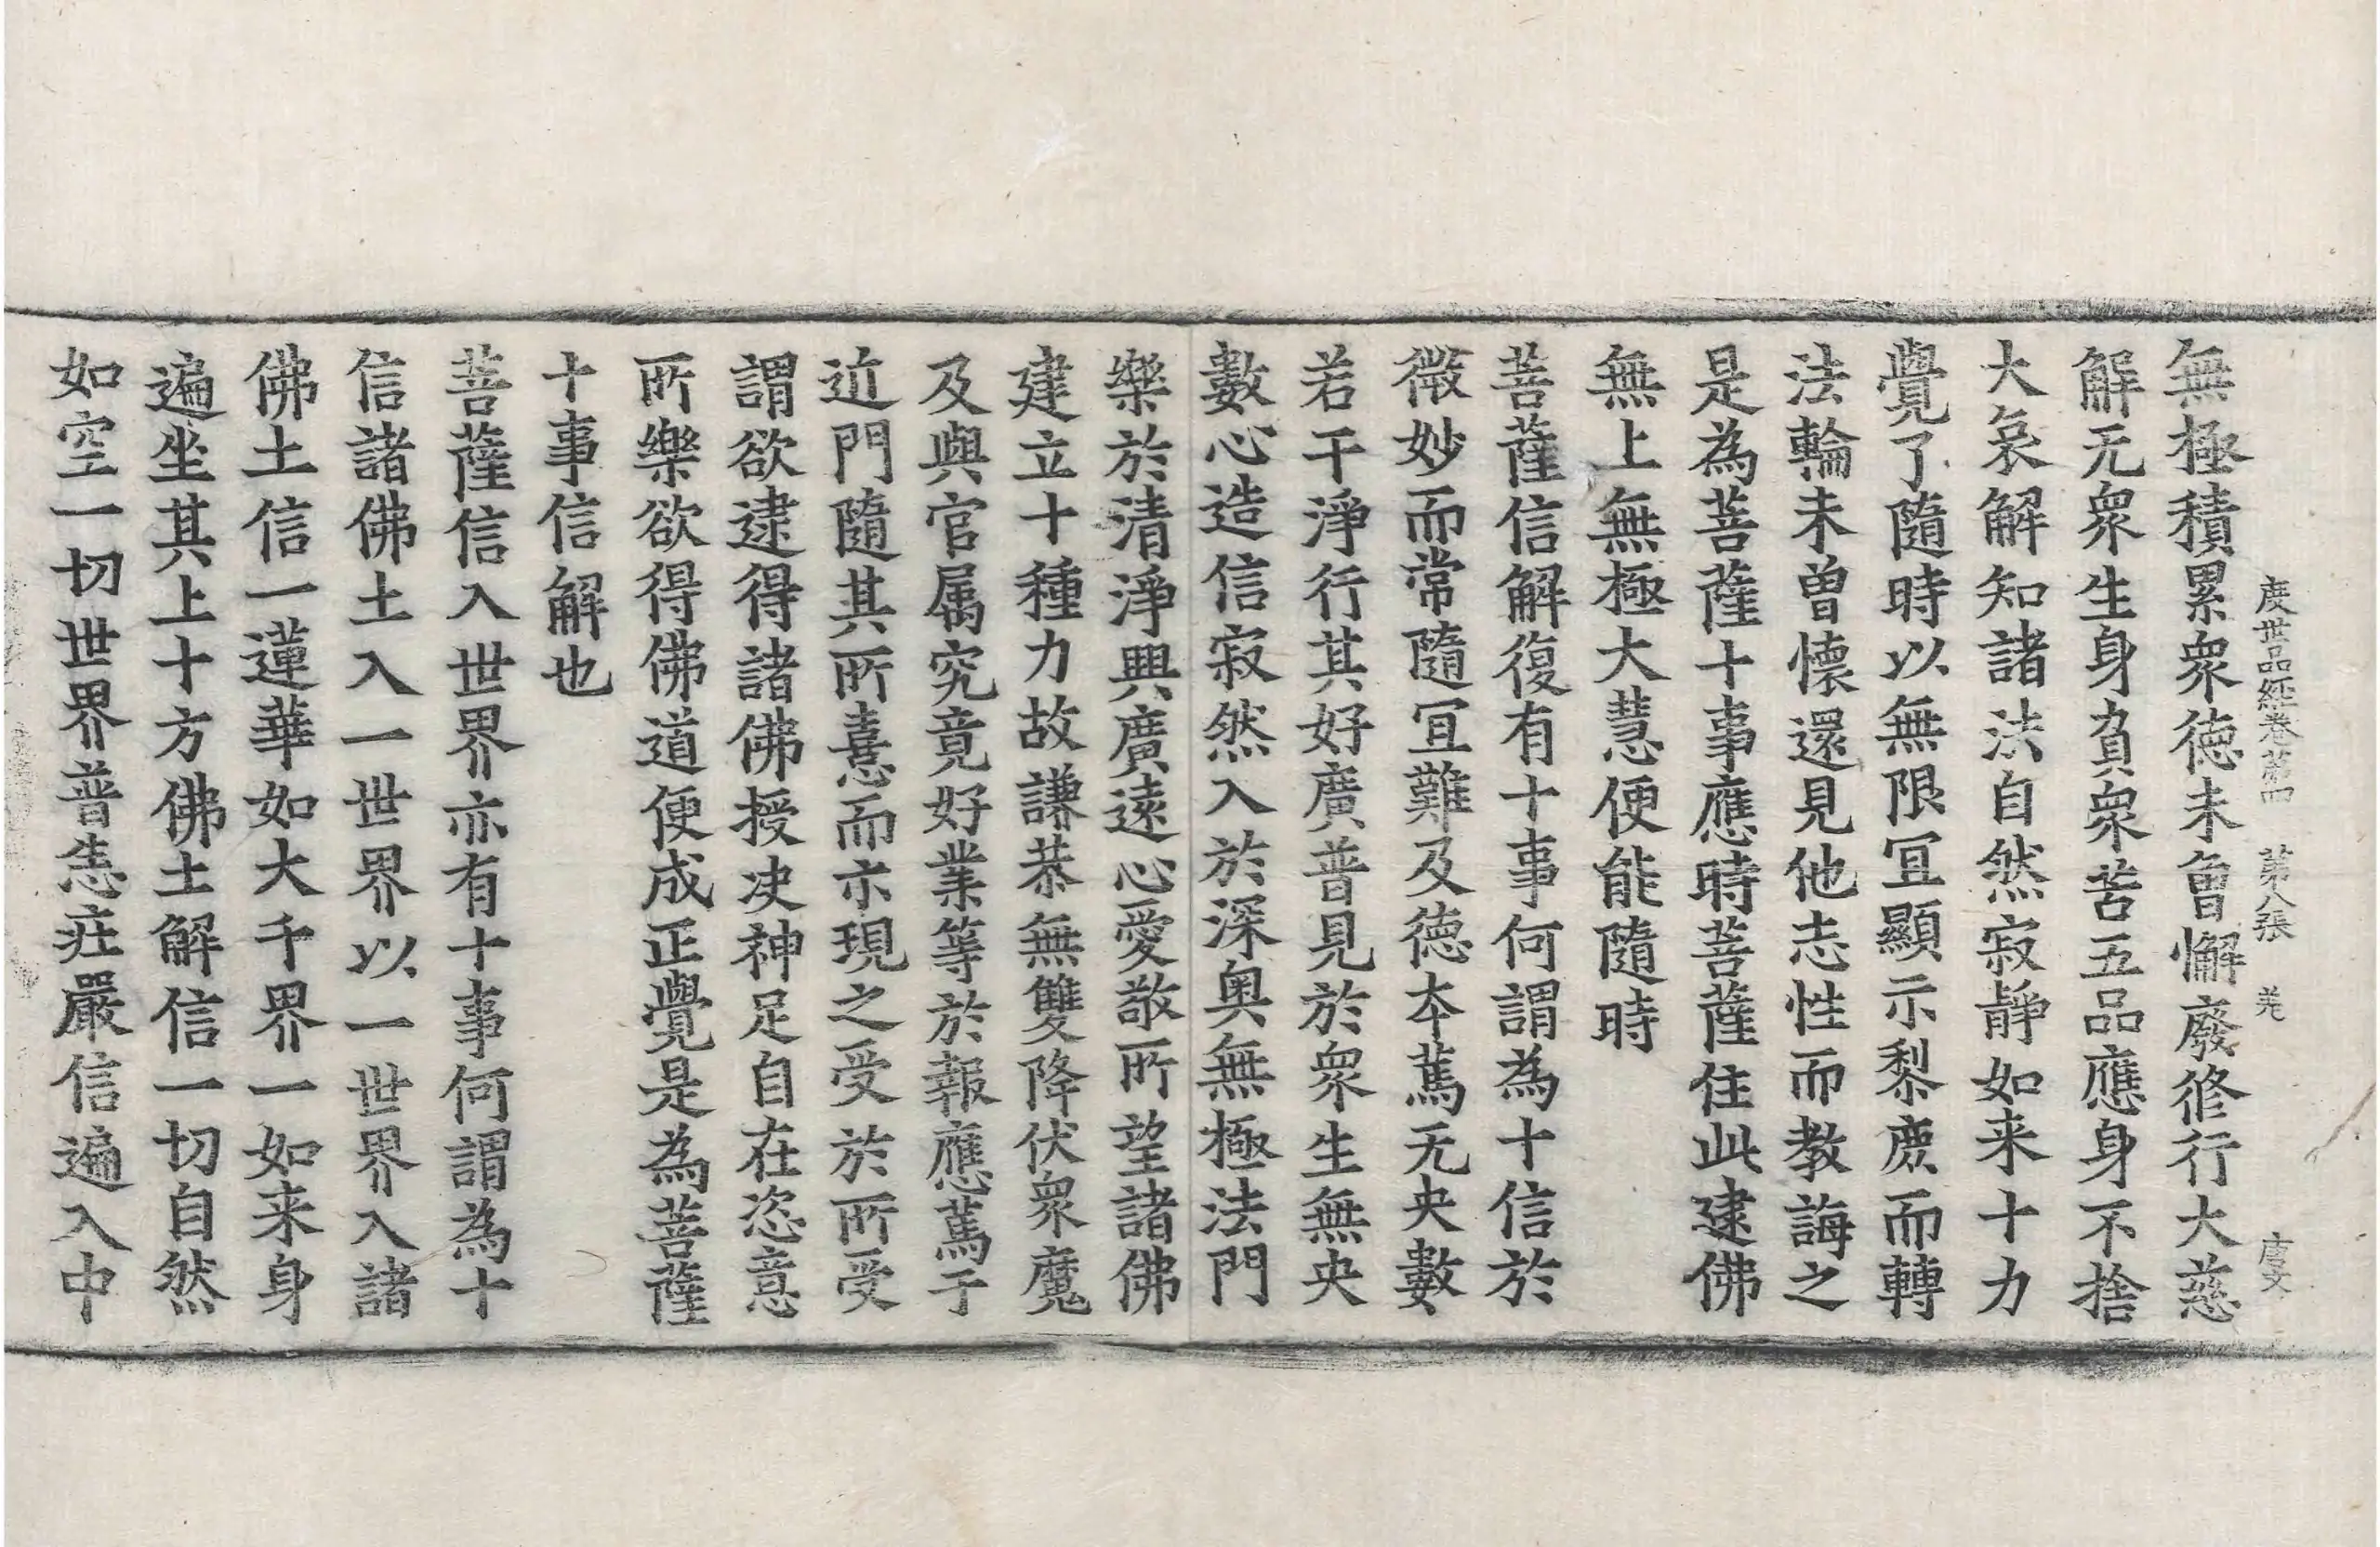 度世品経卷第四 第八張 羌 唐文
無極積累衆徳未曽懈廢修行大慈
解无衆生身負衆苦五品應身不捨
大哀解知諸法自然寂静如来十力
覺了隨時以無限冝顯示黎庶而轉
法輪未曽懷還見他志性而教誨之
是為菩薩十事應時菩薩住此逮佛
無上無極大慧便能隨時
菩薩信解復有十事何謂為十信於
微妙而常隨冝難及徳夲蔫无央數
若干淨行其好廣普見於衆生無央
數心造信寂然入於深奥無極法門
樂於清淨興廣遠心愛敬所望諸佛
建立十種力故謙恭無雙降伏衆魔
及與官属究竟好業等於報應蔫于
近門隨其所憙而亦現之受於所受
謂欲逮得諸佛授决神足自在恣意
所樂欲得佛道便成正覺是為菩薩
十事信解也
菩薩信入世界亦有十事何謂為十
信諸佛土入一世界以一世界入諸
佛土信一蓮華如大千界一如来身
遍坐其上十方佛土解信一切自然
如空一切世界普悉莊嚴信遍入中